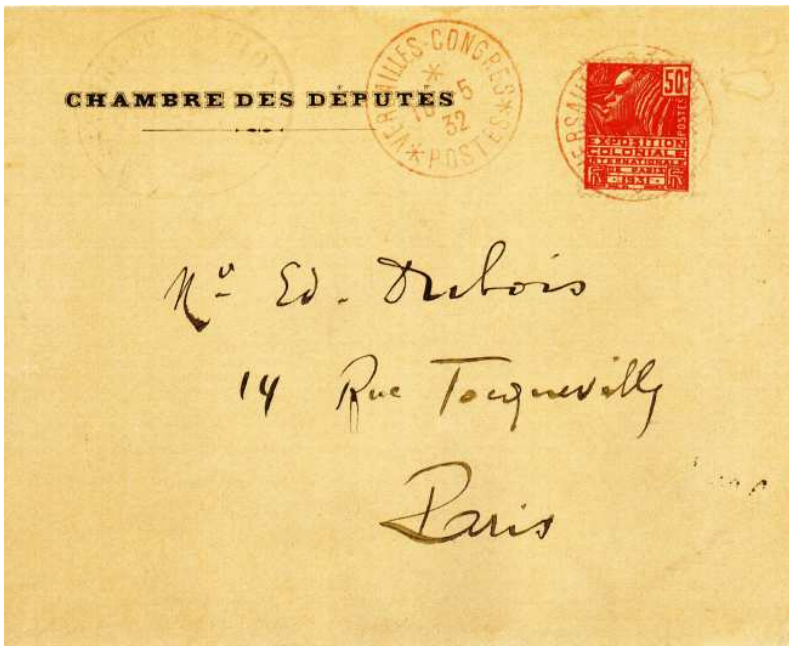 CHAMBRE DES DÉPUTÉS
VERSAILLES-CONGRES
5
32
POSTES
50c
POSTES
EXPOSITION
COLONIALE
INTERNATIONALE
DE PARIS
1931
Mr Ed. Dubois
14 Rue Tocqueville
Paris